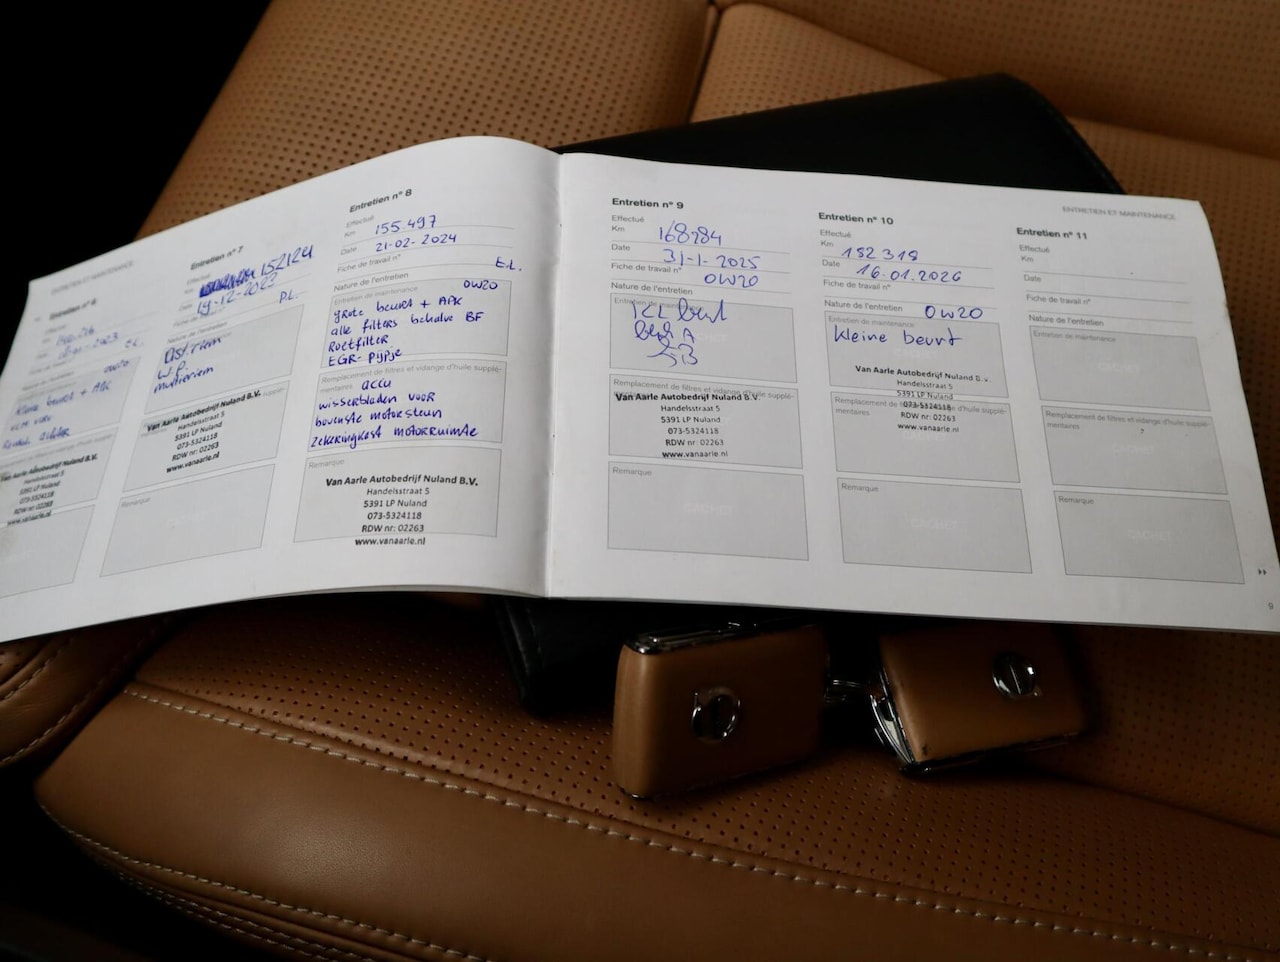 ENTRETIEN ET MAINTENANCE
Entretien n° 6
Effectué
Km
Date
E.L.
Fiche de travail n°
Nature de l'entretien
0W20
kleine beurt + APK
Van Aarle Autobedrijf Nuland B.V.
Handelsstraat 5
5391 LP Nuland
073-5324118
RDW nr: 02263
www.vanaarle.nl
Entretien n° 7
Effectué
Km 152124
Date 19-12-2023
Fiche de travail n° P.L.
Nature de l'entretien
W.P.
multiriem
Van Aarle Autobedrijf Nuland B.V.
Handelsstraat 5
5391 LP Nuland
073-5324118
RDW nr: 02263
www.vanaarle.nl
Remarque
Entretien n° 8
Effectué
Km 155 497
Date 21-02-2024
Fiche de travail n° E.L.
Nature de l'entretien 0W20
Entretien de maintenance
grote beurt + APK
alle filters behalve BF
Roetfilter
EGR-pijpje
Remplacement de filtres et vidange d'huile supplé-
mentaires accu
wisserbladen voor
bovenste motorsteun
zekeringkast motorruimte
Remarque
Van Aarle Autobedrijf Nuland B.V.
Handelsstraat 5
5391 LP Nuland
073-5324118
RDW nr: 02263
www.vanaarle.nl
Entretien n° 9
Effectué
Km 168784
Date 31-1-2025
Fiche de travail n°
Nature de l'entretien 0W20
Entretien de maintenance
Kl beurt
Remplacement de filtres et vidange d'huile supplé-
mentaires
Van Aarle Autobedrijf Nuland B.V.
Handelsstraat 5
5391 LP Nuland
073-5324118
RDW nr: 02263
www.vanaarle.nl
Remarque
CACHET
ENTRETIEN ET MAINTENANCE
Entretien n° 10
Effectué
Km 182 318
Date 16.01.2026
Fiche de travail n°
Nature de l'entretien 0W20
Entretien de maintenance
kleine beurt
CACHET
Van Aarle Autobedrijf Nuland B.V.
Handelsstraat 5
5391 LP Nuland
073-5324118
RDW nr: 02263
www.vanaarle.nl
Remplacement de filtres et vidange d'huile supplé-
mentaires
Remarque
CACHET
Entretien n° 11
Effectué
Km
Date
Fiche de travail n°
Nature de l'entretien
Entretien de maintenance
CACHET
Remplacement de filtres et vidange d'huile supplé-
mentaires
Remarque
CACHET
9